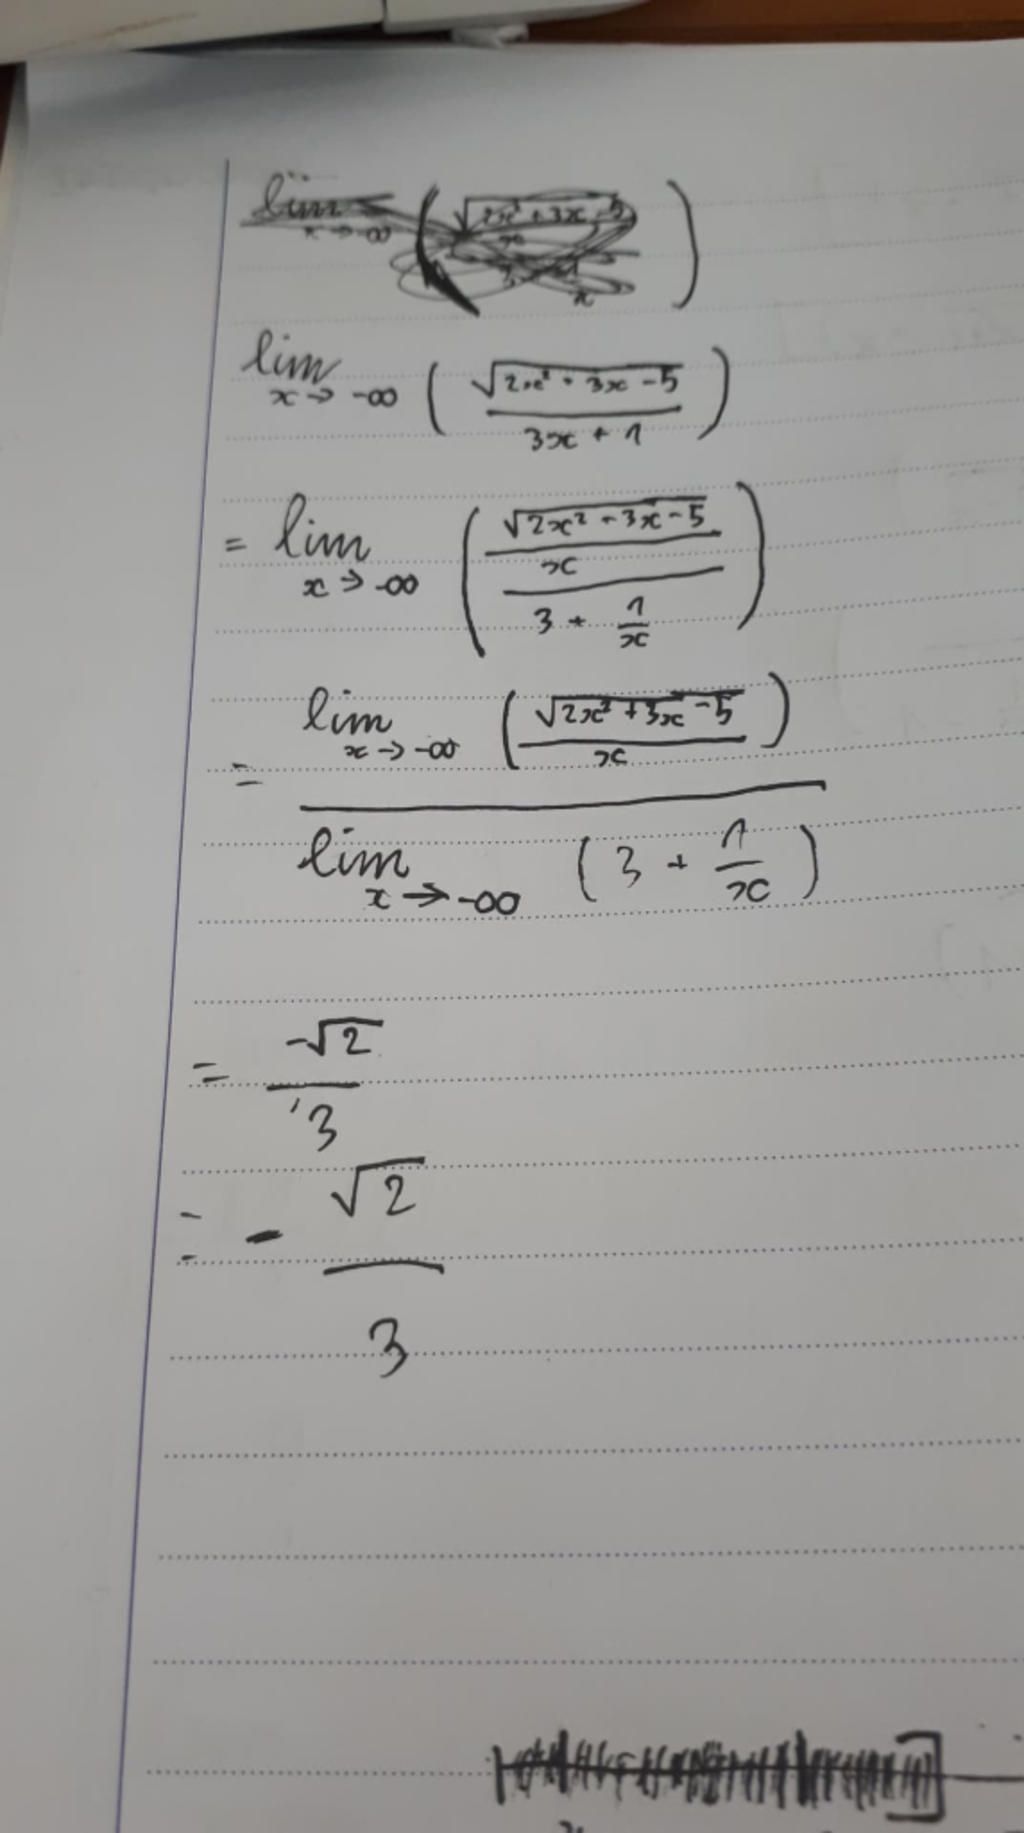 lim x → -∞ ( √(2x² + 3x - 5) / (3x + 1) )
= lim x → -∞ ( (√(2x² + 3x - 5) / x) / (3 + 1/x) )
= lim x → -∞ ( √(2x² + 3x - 5) / x ) / lim x → -∞ ( 3 + 1/x )
= -√2 / 3
= - √2 / 3